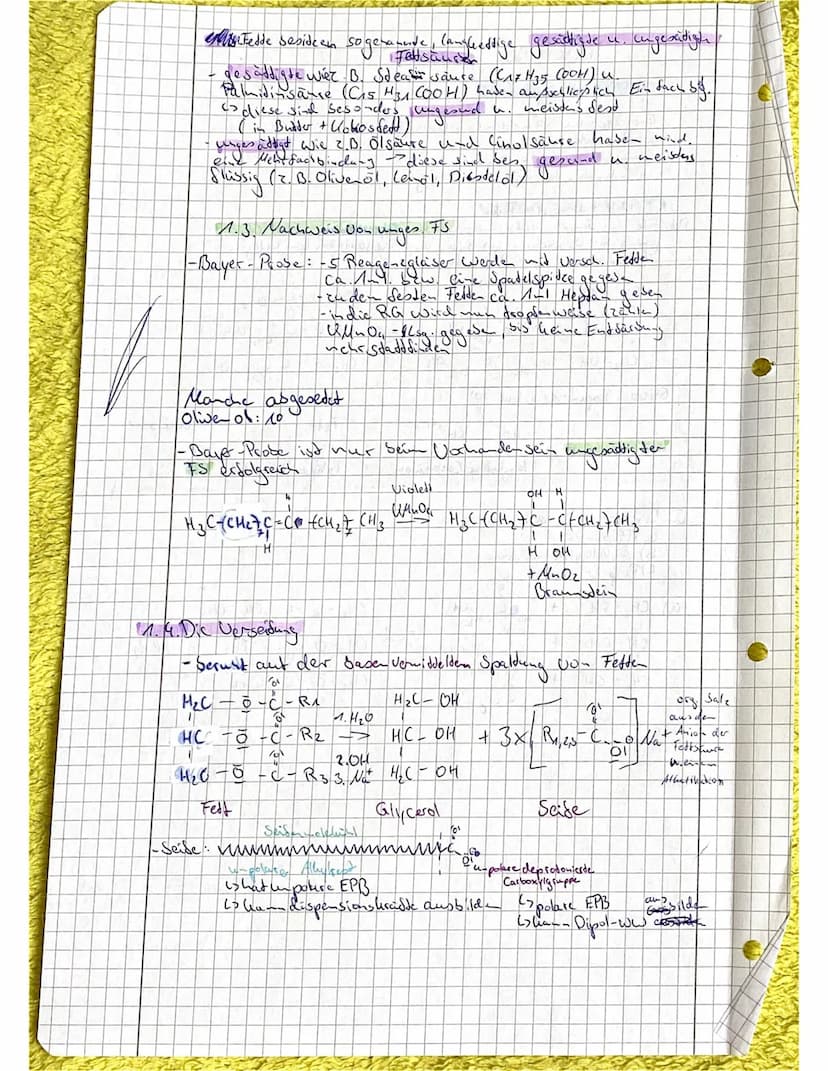 Fette besitzen sogenannte, langkettige gesättigte u. ungesättigte
Fettsäuren
- gesättigte wie z.B. Stearinsäure (C17 H35 COOH) u.
Palmitinsäure (C15 H31 COOH) haben außschließlich Einfachb.
↳ diese sind besonders ungesund u. meistens fest
(in Butter + Kokosfett)
- ungesättigt wie z.B. Ölsäure und Linolsäure haben mind.
eine Mehrfachbindung → diese sind bes. gesund u. meistens
flüssig (z.B. Olivenöl, Leinöl, Distelöl)
1.3. Nachweis von unges. FS
- Bayer-Probe: - 5 Reagenzgläser werden mit versch. Fetten
ca. 1ml. bzw. eine Spatelspitze gegeben
- zu den festen Fetten ca. 1ml Heptan geben
- in die RG wird nun tropfenweise (zählen)
KMnO4-Lsg. gegeben, bis keine Entfärbung
mehr stattfindet
Manche abgesetzt
Olivenöl: 10
- Bayer-Probe ist nur beim Vorhandensein ungesättigter
FS erfolgreich
H Violett OH H
H3C-(CH2)7-C=C-(CH2)7 CH3 KMnO4 → H3C-(CH2)7C-C-(CH2)7CH3
H H OH
+ MnO2
Braunstein
1.4. Die Verseifung
- beruht auf der basenvermittelten Spaltung von Fetten
H2C-O-C-R1 H2C-OH
HC-O-C-R2 1. H2O → HC-OH + 3x [R1,2,3-C-O] Na+
H2C-O-C-R3 2. OH 3. Na+ H2C-OH
org. Salz
aus dem
Anion der
Fettsäure
u. einem
Alkalikation
Fett Glycerol Seife
Seifenmolekühl
- Seife:
u-polarer Alkylrest
polare deprotonierte
Carboxylgruppe
↳ hat unpolare EPB ↳ polare EPB
↳ kann dispensionskräfte ausbilden ↳ kann Dipol-WW ausbilden